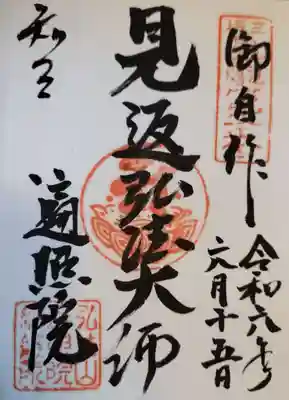 御自作
令和六年
六月十五日
見返弘法大師
知多
遍照院